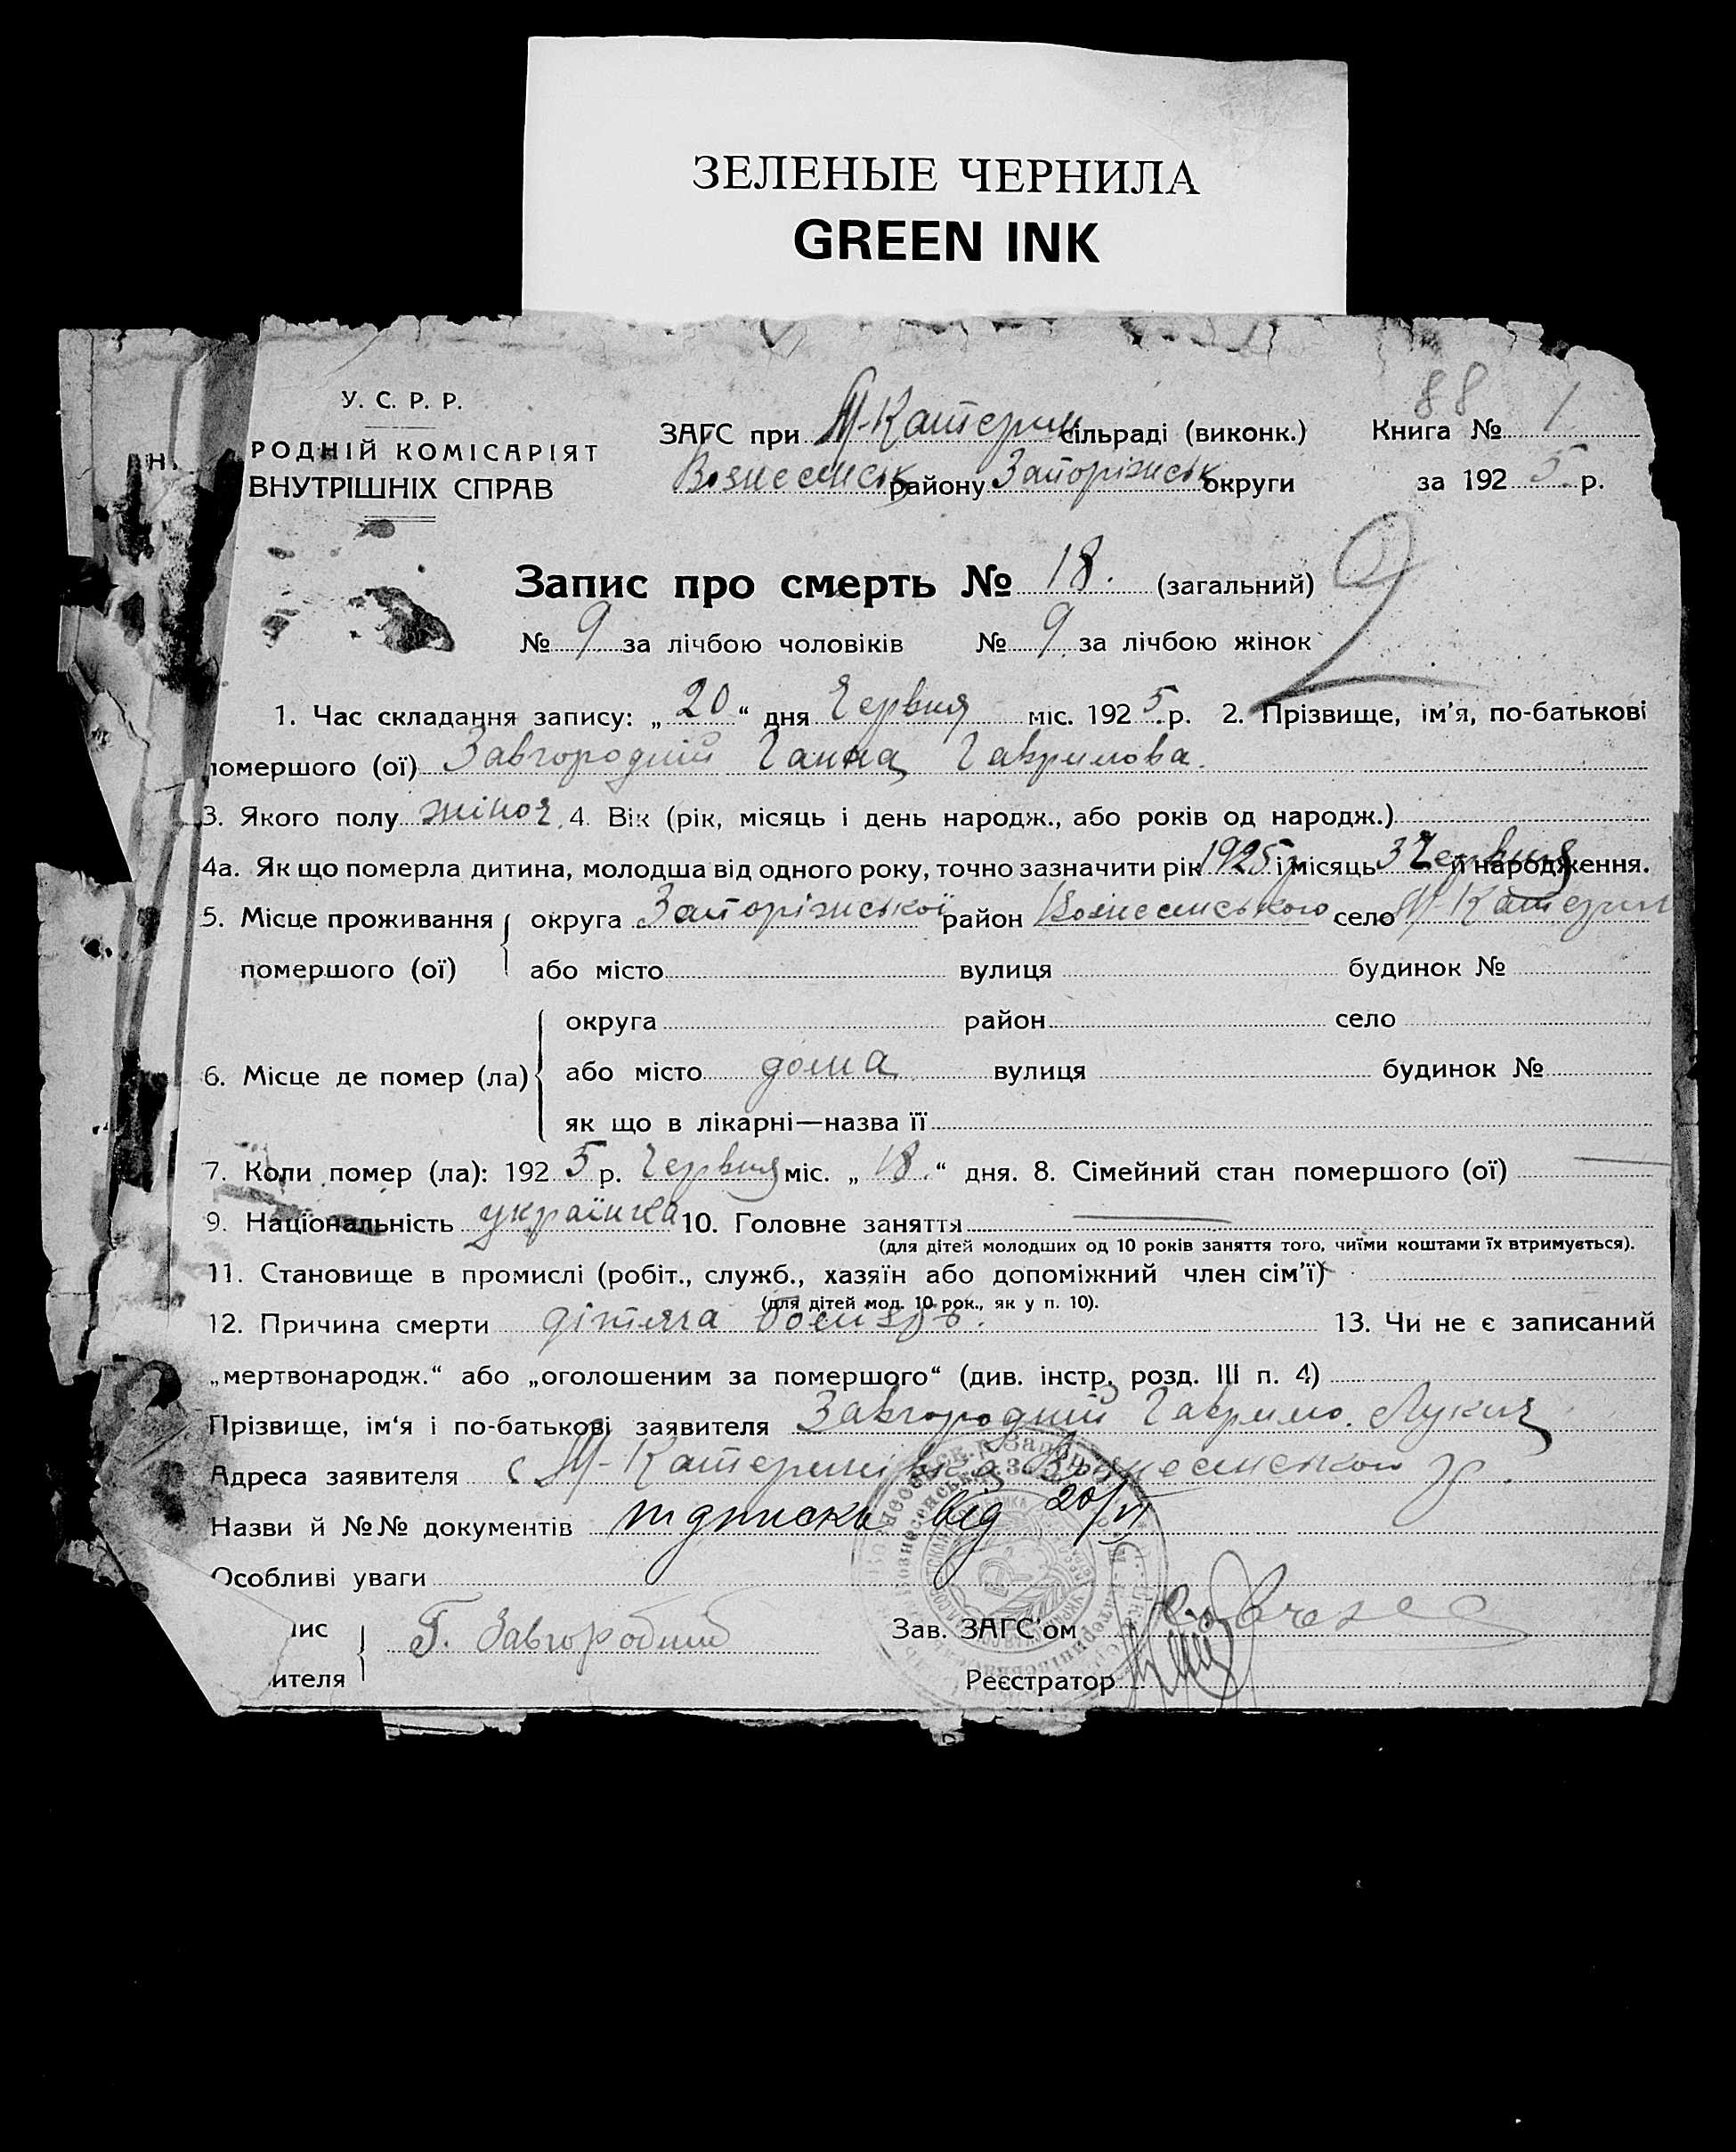 ЗЕЛЕНЫЕ ЧЕРНИЛА
GREEN INK
88
У. С. Р. Р.
РОДНІЙ КОМІСАРІЯТ
ВНУТРІШНІХ СПРАВ
ЗАГС при М-Катерин сільраді (виконк.) Книга № 1
Вознесенськ району Запоріжськ округи за 1925 р.
Запис про смерть № 18. (загальний)
№ 9 за лічбою чоловіків № 9. за лічбою жінок
1. Час складання запису: „20“ дня Червня міс. 1925 р. 2. Прізвище, ім’я, по-батькові
помершого (ої) Завгородній Ганна Гаврилова.
3. Якого полу жіноч. 4. Вік (рік, місяць і день народж., або років од народж.)
4а. Як що померла дитина, молодша від одного року, точно зазначити рік 1925 р і місяць 3 Червня й народження.
5. Місце проживання округа Запоріжської район Вознесенського село М-Катерин
помершого (ої) або місто вулиця будинок №
округа район село
6. Місце де помер (ла) або місто дома вулиця будинок №
як що в лікарні—назва її
7. Коли помер (ла): 1925 р. Червня міс. „18.“ дня. 8. Сімейний стан помершого (ої) —
9. Національність українка 10. Головне заняття —
(для дітей молодших од 10 років заняття того, чиїми коштами їх втримується).
11. Становище в промислі (робіт., служб., хазяїн або допоміжний член сім’ї)
(для дітей мол. 10 рок., як у п. 10).
12. Причина смерти дітяча 13. Чи не є записаний
„мертвонародж.“ або „оголошеним за помершого“ (див. інстр. розд. III п. 4)
Прізвище, ім‘я і по-батькові заявителя Завгородній Гаврило. Лукич
Адреса заявителя с М-Катеринівка Вознесенськои р.
Назви й №№ документів підписка від 20/VI
Особливі уваги
пис Г. Завгородний Зав. ЗАГС’ом
ителя Реєстратор